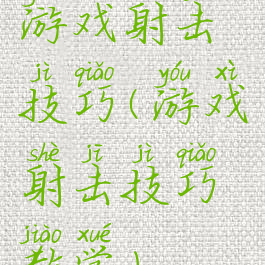 游戏射击
jì qiǎo yóu xì
技巧(游戏
shè jī jì qiǎo
射击技巧
jiào xué
教学)